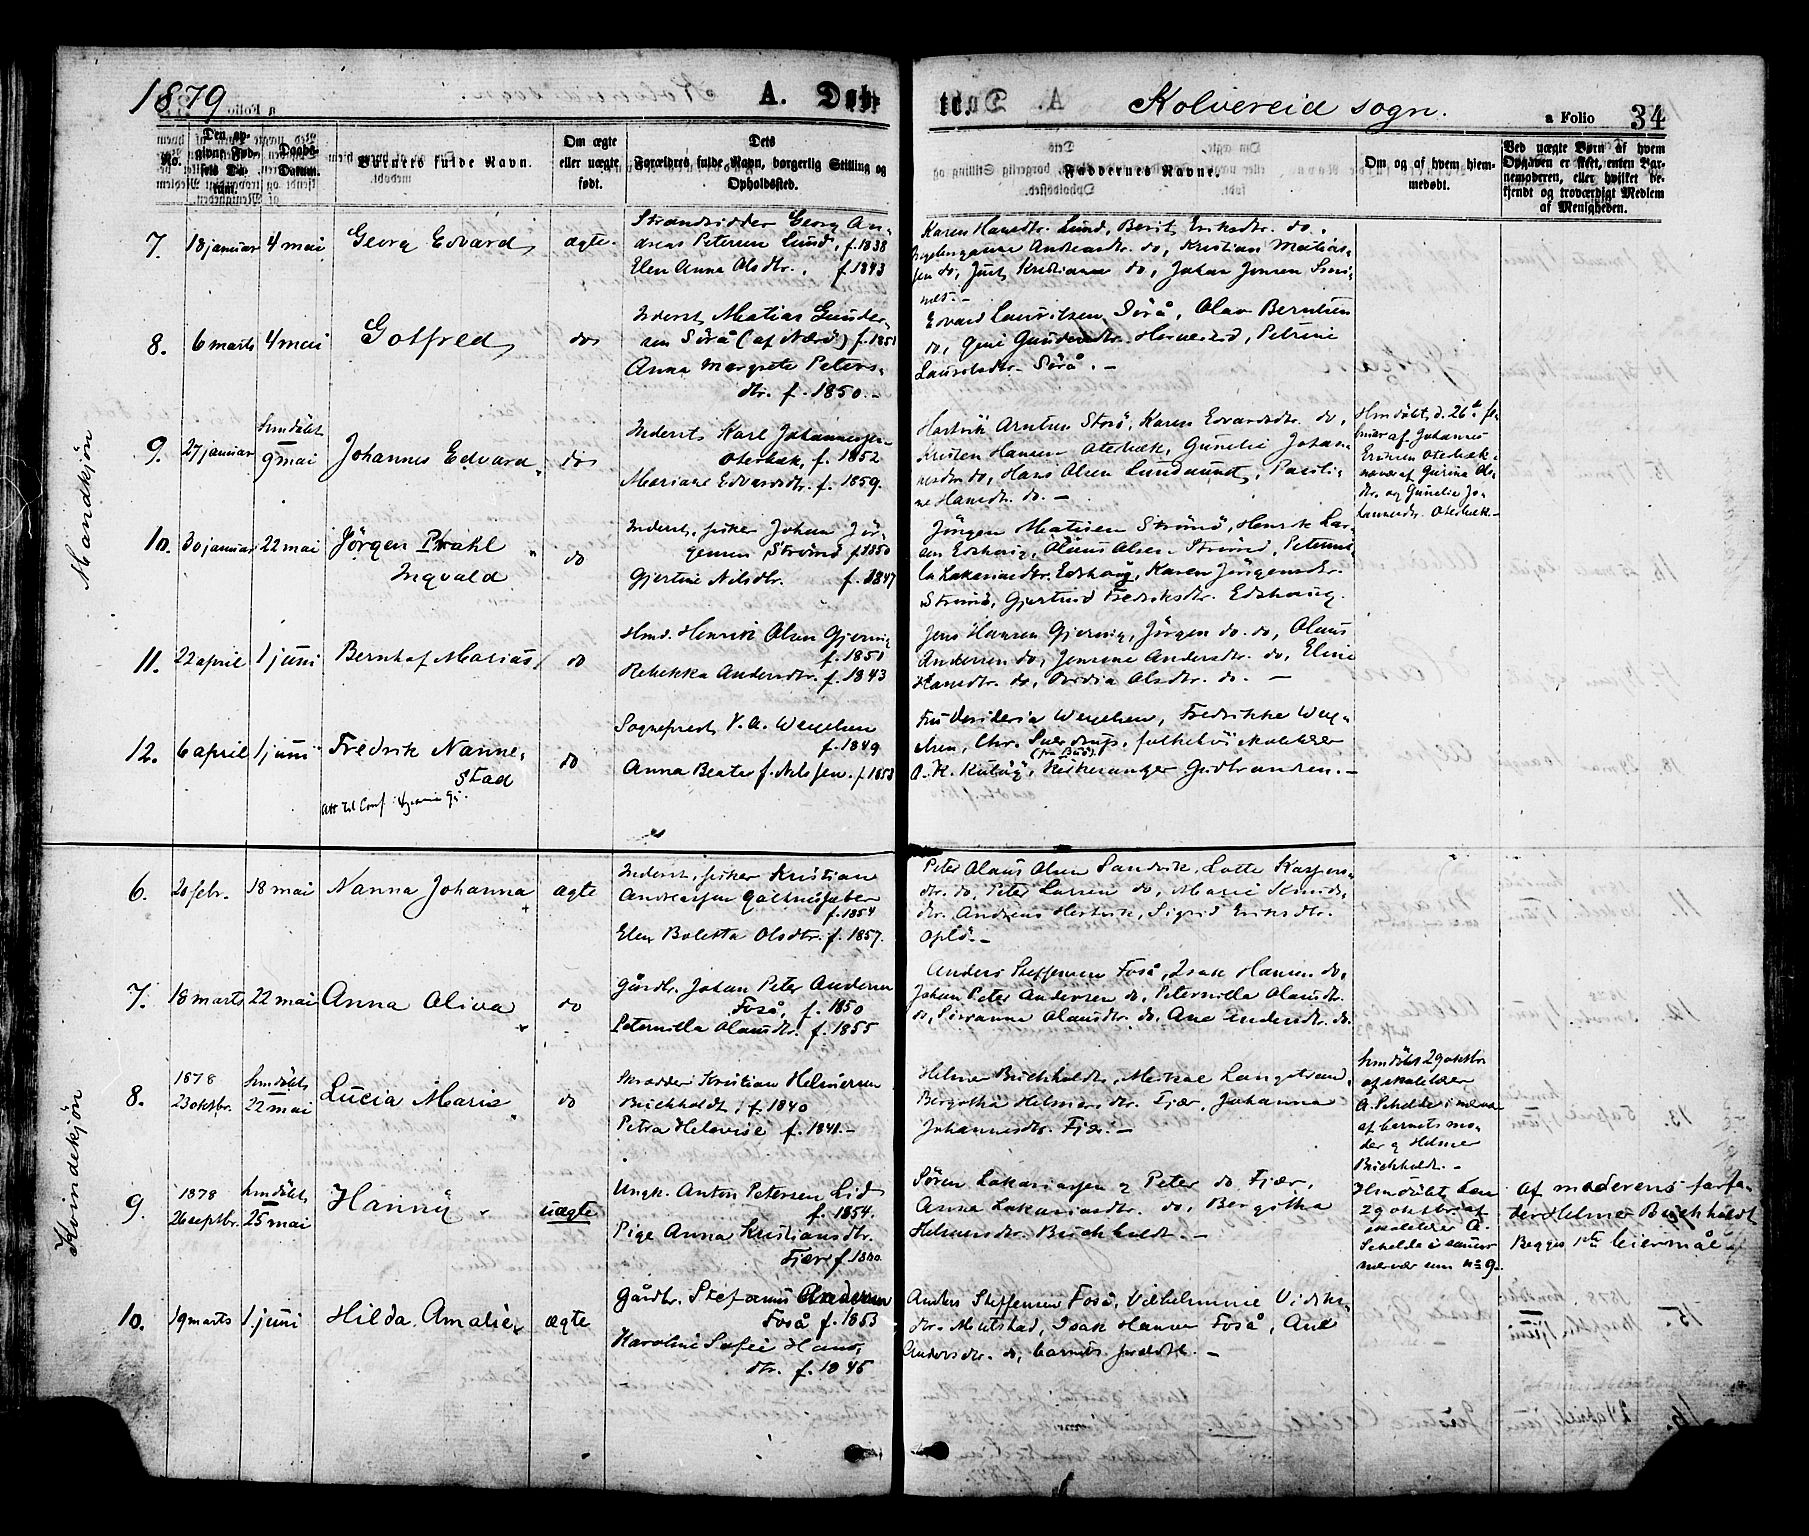 1879
a Folio
A. Døb-
te.
Kolvereid sogn.
a Folio 34
No.
Den op-
givne Fød-
sels Da-
tum.
Daabs-
Datum.
Barnets fulde Navn.
Om ægte
eller uægte
født.
Dets
Forældres fulde Navn, borgerlig Stilling og
Opholdssted.
Faddernes Navne.
Om og af hvem hjem-
medøbt.
Ved uægte Børn af hvem
Opgaven er skeet, enten Bar-
nemoderen, eller hvilket be-
kjendt og troværdigt Medlem
af Menigheden.
Mandkjön
7. 18 januar 4 mai Georg Edvard ægte
Strandsidder Georg An-
dreas Petersen Lund, f. 1838
Elen Anna Olsdtr., f. 1843
Karen Hansdtr. Lund, Berit Eriksdtr. do,
Andreasdtr. do, Kristian Matias-
sen do, Just Kristiansen do, Johan Jensen
8. 6 marts 4 mai Gotfred do
Inderst Matias Gunder-
sen Sörå (af Nærö) f. 1851
Anna Margrete Peters-
dtr. f. 1850.-
Edvard Lauritsen Sörå, Olav Berntsen
do, Gunders­dtr. Horvereid, Petrine
Lauritsdtr. Sörå. -
9. 27 januar hmdöbt 9 mai Johannes Edvard do
Inderst Karl Johannessen
Oterbæk, f. 1852
Mariane Edvardsdtr. f. 1859.
Hartvik Arntsen Storö, Karen Edvardsdtr. do,
Kristen Hansen Oterbæk, Gunelie Johan-
nesdtr. do, Hans Olsen Lundsundt, Pauli-
ne Hansdtr. do. -
Hmdöbt d. 26de fe-
bruar af Johannes
Eriksen Oterbæk
nærvær af Gurina Ols-
dtr. og Gunelie Jo-
hannesdtr. Oterbæk.-
10. 30 januar 22 mai Jörgen Prahl
Ingvald do
Inderst, fisker Johan Jör-
gensen Strömö f. 1850
Gjertine Nilsdtr. f. 1847
Jörgen Matisen Strömö, Henrik Lar-
sen Edshaug, Olaus Olsen Strömö, Peternil-
la Sakariasdtr. Edshaug, Karen Jörgensdtr.
Strömö, Gjertrud Fredriksdtr. Edshaug.
11. 22 april 1 juni Bernhof Matias do
Hmd. Henrik Olsen Gjervig
f. 1851
Rebekka Andersdtr. f. 1843
Jens Hansen Gjervig, Jörgen do. do, Olaus
Andersen do, Jensine Andersdtr. do, Eline
Hansdtr. do, Olsdtr. do. -
12. 6 april 1 juni Fredrik Nanne-
stad do
Att til Conf
Sogneprest V. A. Wexelsen
f. 1849
Anna Beate f. Nilssen. f. 1853
Fru Desideria Wexelsen, Fredrikke Wex-
elsen, Chr. Sverdrup, folkehöiskolelærer
(fra Buö)
O. K. Kulvig, Kirkesanger Gudbrandsen.-
Kvindekjön
6. 20 febr. 18 mai Nanna Johanna ægte
Inderst, fisker Kristian
Andreassen Galtnesfaber
f. 1854
Elen Boletta Olsdtr. f. 1857.
Peter Olaus Olsen Sandvik, Lotte Kaspers-
dtr. do, Peter Larsen do, Marie Knuds-
dtr. Andreas Sigrid Eriksdtr.
Oplö.-
7. 18 marts 22 mai Anna Oliva do
Gårdbr. Johan Peter Andersen
Foså, f. 1850
Peternilla Olausdtr. f. 1855
Anders Steffensen Foså, Isak Hansen do,
Johan Peter Andersen do, Peternilla Olausdtr.
do, Sirianna Olausdtr. do, Ane Andersdtr. do.
8. 1878 23 oktbr. hmdöbt 22 mai Lucia Marie do
Skrædder Kristian Helmersen
Buchholdt, f. 1840
Petra Helovise f. 1841.-
Helmer Buchholdt, Mikal Langstrand,
Bergotha Helmersdtr. Fjær, Johanna
Johannesdtr. Fjær.-
hmdöbt 29 oktbr
af skolelærer
A. Schelde i nærvær
af barnets mo-
der og Helmer
Buchholdt.-
9. 1878 26 septbr. hmdöbt 25 mai Hanny uægte
Ungk. Anton Petersen Lid
f. 1854.
Pige Anna Kristiansdtr.
Fjær f. 1860.
Sören Sakariassen og Peter do Fjær,
Anna Sakariasdtr. do, Bergitha
Helmersdtr. Buchholdt.-
Hmdöbt den
29 oktbr. af
skolelærer A.
Schelde i samme
nærvær som No 9.
Af moderens farfa-
der Helmer Buchholdt
Begges 1ste leiermål
10. 19 marts 1 juni Hilda Amalie ægte
Gårdbr. Stefanus Andersen
Foså f. 1853
Karoline Sofie Hans-
dtr. f. 1845
Anders Steffensen Foså, Vilhelmine Vidiks-
dtr. Mulstad, Isak Hansen Foså, Ane
Andersdtr. do, barnets forældre. -